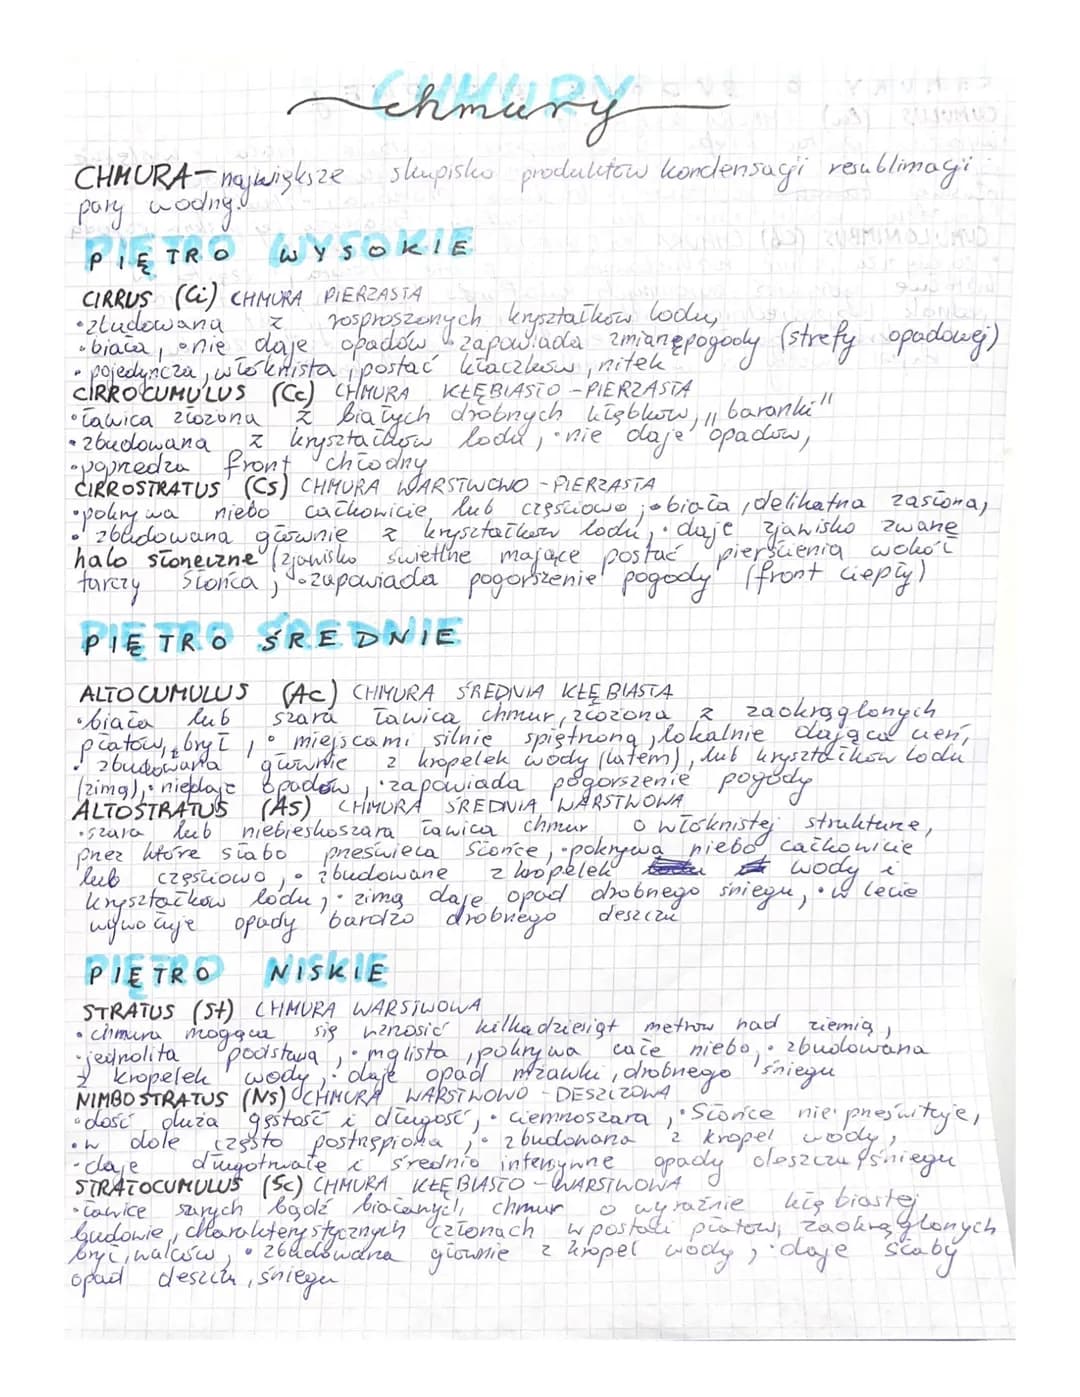 CHMURY
chmury
CHMURA - największe skupisko produktów kondensacji resublimacji
pary wodnej.
PIĘTRO WYSOKIE
CIRRUS (Ci) CHMURA PIERZASTA
•zbudowana z rosproszonych kryształków lodu,
•biała, •nie daje opadów •zapowiada zmianę pogody (strefy opadowej)
• pojedyncza, włóknista, postać kłaczków, nitek
CIRROCUMULUS (Cc) CHMURA KŁĘBIASTO - PIERZASTA
•ławica złożona z białych drobnych kłębków, "baranki"
•zbudowana z kryształków lodu, •nie daje opadów,
•poprzedza front chłodny
CIRROSTRATUS (Cs) CHMURA WARSTWOWO - PIERZASTA
•pokrywa niebo całkowicie lub częściowo; •biała, delikatna zasłona,
• zbudowana głównie z kryształków lodu, • daje zjawisko zwane
halo słoneczne (zjawisko świetlne mające postać pierścienia wokół
tarczy Słońca, •zapowiada pogorszenie pogody (front ciepły)
PIĘTRO ŚREDNIE
ALTOCUMULUS (Ac) CHMURA ŚREDNIA KŁĘBIASTA
•biała lub szara ławica chmur, złożona z zaokrąglonych
płatów, brył, • miejscami silnie spiętrzona, lokalnie dająca cień,
• zbudowana głównie z kropelek wody (latem), lub kryształków lodu
(zimą), • nie daje opadów, •zapowiada pogorszenie pogody
ALTOSTRATUS (As) CHMURA ŚREDNIA WARSTWOWA
•szara lub niebieskoszara ławica chmur o włóknistej strukturze,
przez które słabo prześwieca Słońce, •pokrywa niebo całkowicie
lub częściowo, • zbudowane z kropelek wody i
kryształków lodu, • zimą daje opad drobnego śniegu, • w lecie
wywołuje opady bardzo drobnego deszczu
PIĘTRO NISKIE
STRATUS (St) CHMURA WARSTWOWA
•chmura mogąca się wznosić kilkadziesiąt metrów nad ziemią,
•jednolita podstawa, • mglista, pokrywa całe niebo, • zbudowana
z kropelek wody, • daje opad mżawki, drobnego śniegu
NIMBOSTRATUS (Ns) CHMURA WARSTWOWO - DESZCZOWA
•dość duża gęstość i długość, • ciemnoszara, •Słońce nie prześwituje,
•w dole często postrzępiona, • zbudowana z kropel wody,
•daje długotrwałe i średnio intensywne opady deszczu śniegu
STRATOCUMULUS (Sc) CHMURA KŁĘBIASTO - WARSTWOWA
•ławice szarych bądź białawych, chmur o wyraźnie kłębiastej
budowie, charakterystycznych członach w postaci płatów, zaokrąglonych
brył, walców, • zbudowana głównie z kropel wody, • daje słaby
opad deszczu, śniegu